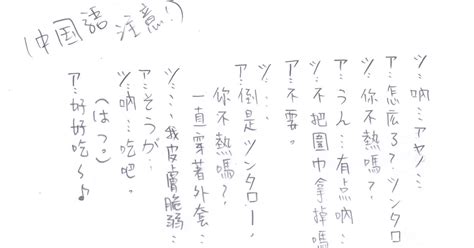 (中国語注意!)
ツ:吶…アヤノ…
ア:怎庅了?ツンタロ
ツ:你不熱嗎?
ア:うん…有点吶…
ツ:不把圍巾拿掉嗎
ア:不要。
ツ:…
ア:倒是ツンタロー、
你不熱嗎?
一直穿著外套
ツ:…、我皮膚脆弱…
ア:そうが…
ツ:吶…吃吧。
(はっ。)
ア:好好吃~♪